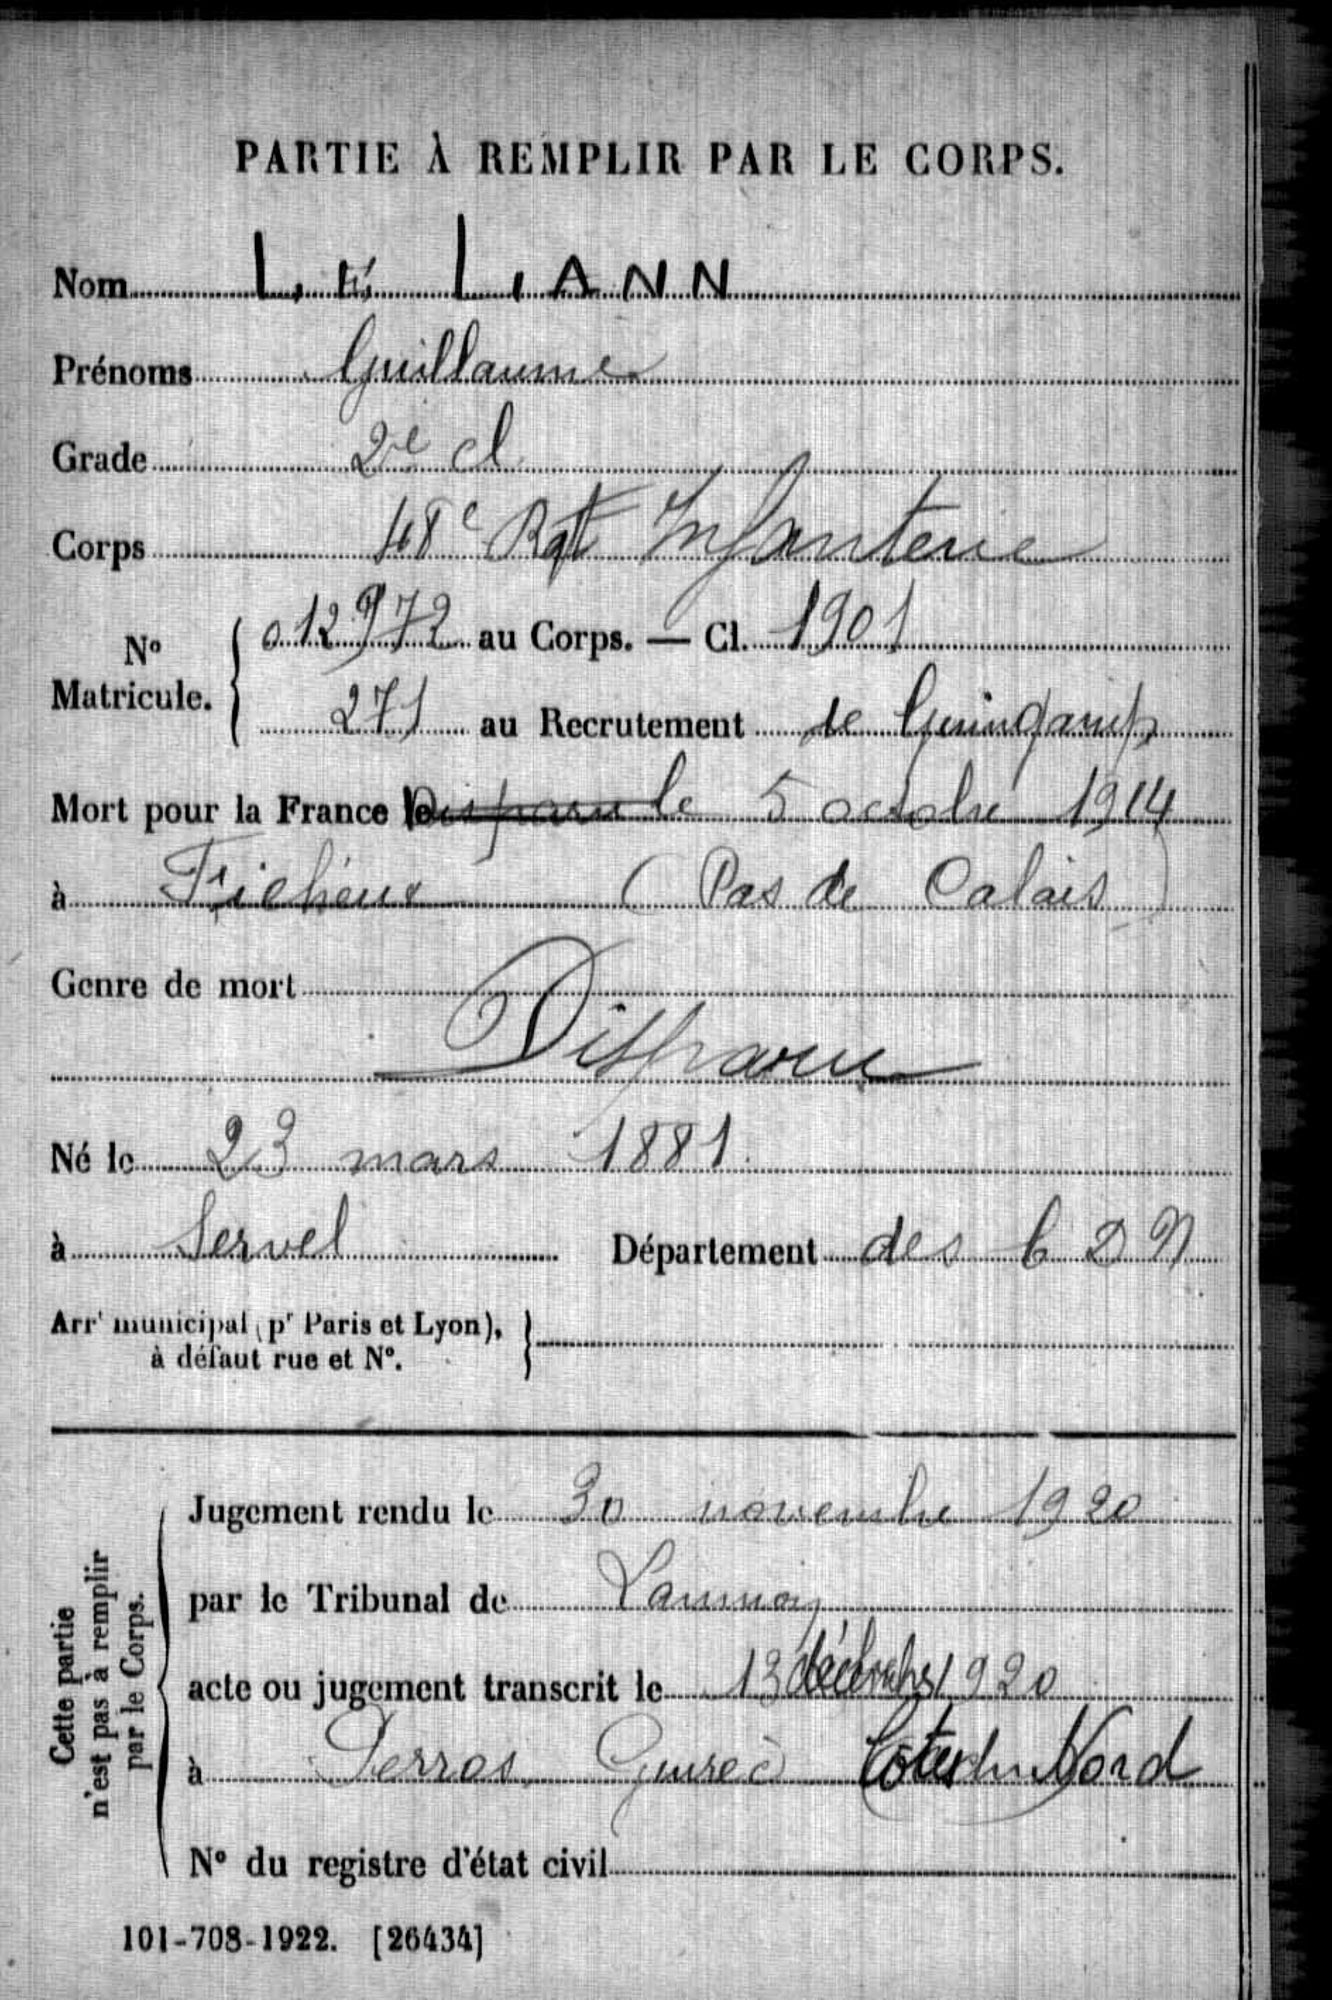 PARTIE À REMPLIR PAR LE CORPS.
Nom LE LANN
Prénoms Guillaume
Grade 2e cl
Corps 48e Rgt Infanterie
No Matricule. { 012972 au Corps. — Cl. 1901
271 au Recrutement de Guingamp
Mort pour la France le Disparu le 5 octobre 1914
à Ficheux (Pas de Calais)
Genre de mort
Disparu
Né le 23 mars 1881.
à Servel Département des C D N
Arrt municipal (pr Paris et Lyon),
à défaut rue et No. }
Cette partie
n'est pas à remplir
par le Corps.
Jugement rendu le 30 novembre 1920
par le Tribunal de Lannion
acte ou jugement transcrit le 13 décembre 1920
à Perros Guirec Cotes du Nord
No du registre d'état civil
101-708-1922. [26434]